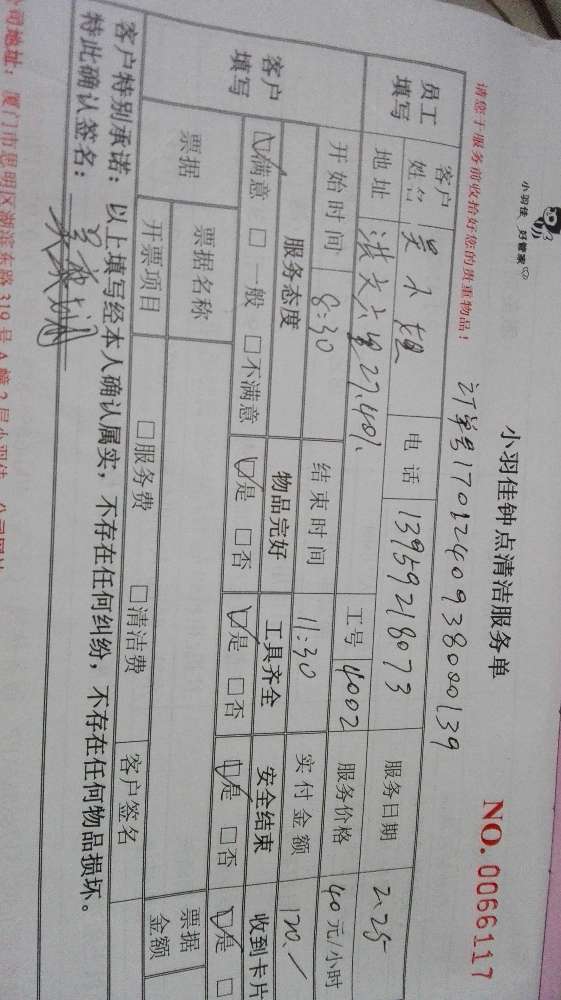 小羽佳 好管家
小羽佳钟点清洁服务单
NO. 0066117
订单号170224093800139
请您于服务前收拾好您的贵重物品！
员工填写 客户姓名 吴小姐 电话 13959218073 服务日期 2.25
地址 工号 4002 服务价格 40元/小时
开始时间 8:30 结束时间 11:30 实付金额 120.
客户填写 服务态度 物品完好 工具齐全 安全结束 收到卡片
☑满意 □一般 □不满意 ☑是 □否 ☑是 □否 ☑是 □否 ☑是 □
票据 票据名称 □服务费 □清洁费 客户签名 票据金额
开票项目
客户特别承诺：以上填写经本人确认属实，不存在任何纠纷，不存在任何物品损坏。
特此确认签名：
公司地址：厦门市思明区湖滨东路319号A幢2层小羽佳